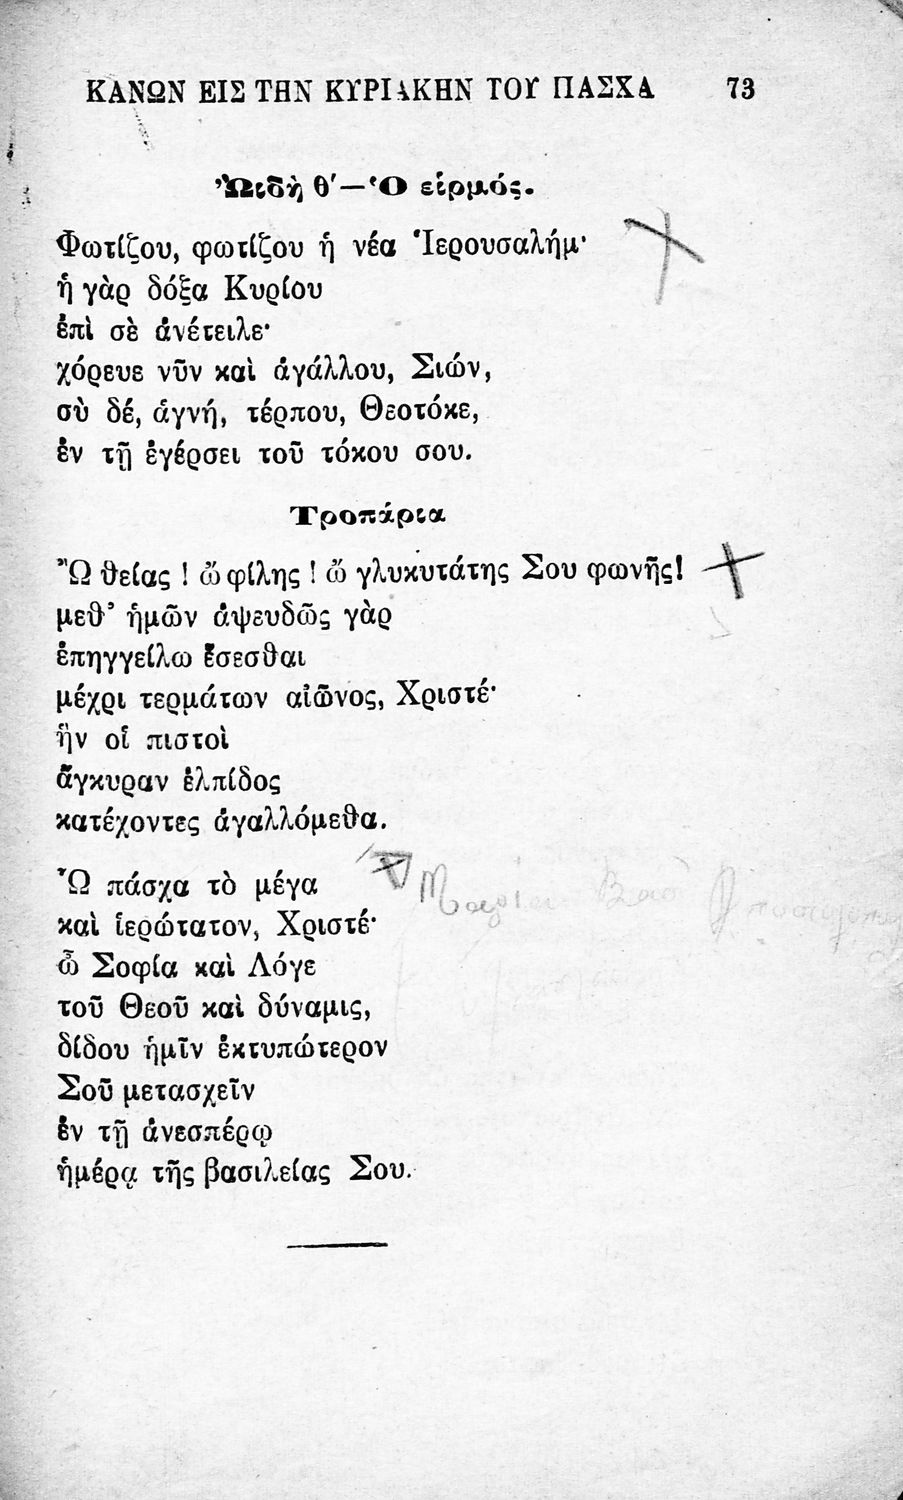 ΚΑΝΩΝ ΕΙΣ ΤΗΝ ΚΥΡΙΑΚΗΝ ΤΟΥ ΠΑΣΧΑ 73
Ὠιδὴ θ′—Ὁ εἱρμός.
Φωτίζου, φωτίζου ἡ νέα Ἱερουσαλήμ·
ἡ γὰρ δόξα Κυρίου
ἐπὶ σὲ ἀνέτειλε·
χόρευε νῦν καὶ ἀγάλλου, Σιών,
σὺ δέ, ἁγνή, τέρπου, Θεοτόκε,
ἐν τῇ ἐγέρσει τοῦ τόκου σου.
Τροπάρια
Ὢ θείας ! ὢ φίλης ! ὢ γλυκυτάτης Σου φωνῆς!
μεθ' ἡμῶν ἀψευδῶς γὰρ
ἐπηγγείλω ἔσεσθαι
μέχρι τερμάτων αἰῶνος, Χριστέ·
ἣν οἱ πιστοὶ
ἄγκυραν ἐλπίδος
κατέχοντες ἀγαλλόμεθα.
Ὢ πάσχα τὸ μέγα
καὶ ἱερώτατον, Χριστέ·
ὦ Σοφία καὶ Λόγε
τοῦ Θεοῦ καὶ δύναμις,
δίδου ἡμῖν ἐκτυπώτερον
Σοῦ μετασχεῖν
ἐν τῇ ἀνεσπέρῳ
ἡμέρᾳ τῆς βασιλείας Σου.